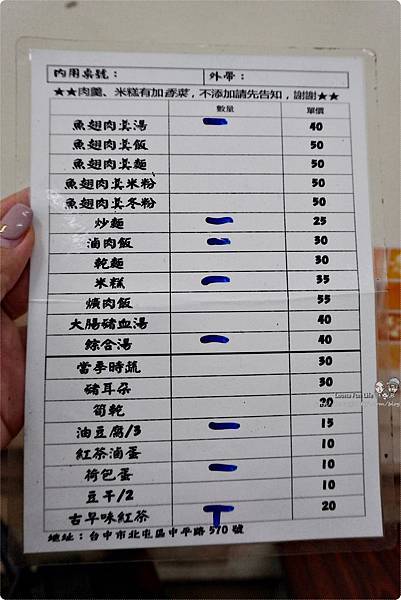 內用桌號： 外帶：
★★肉羹、米糕有加香菜，不添加請先告知，謝謝★★
數量 單價
魚翅肉羹湯 一 40
魚翅肉羹飯 50
魚翅肉羹麵 50
魚翅肉羹米粉 50
魚翅肉羹冬粉 50
炒麵 一 25
滷肉飯 一 30
乾麵 30
米糕 一 35
爌肉飯 55
大腸豬血湯 40
綜合湯 一 40
當季時蔬 30
豬耳朵 30
筍乾 20
油豆腐/3 一 15
紅茶滷蛋 10
荷包蛋 一 10
豆干/2 10
古早味紅茶 T 20
地址：台中市北屯區中平路570號
Loona Fun Life